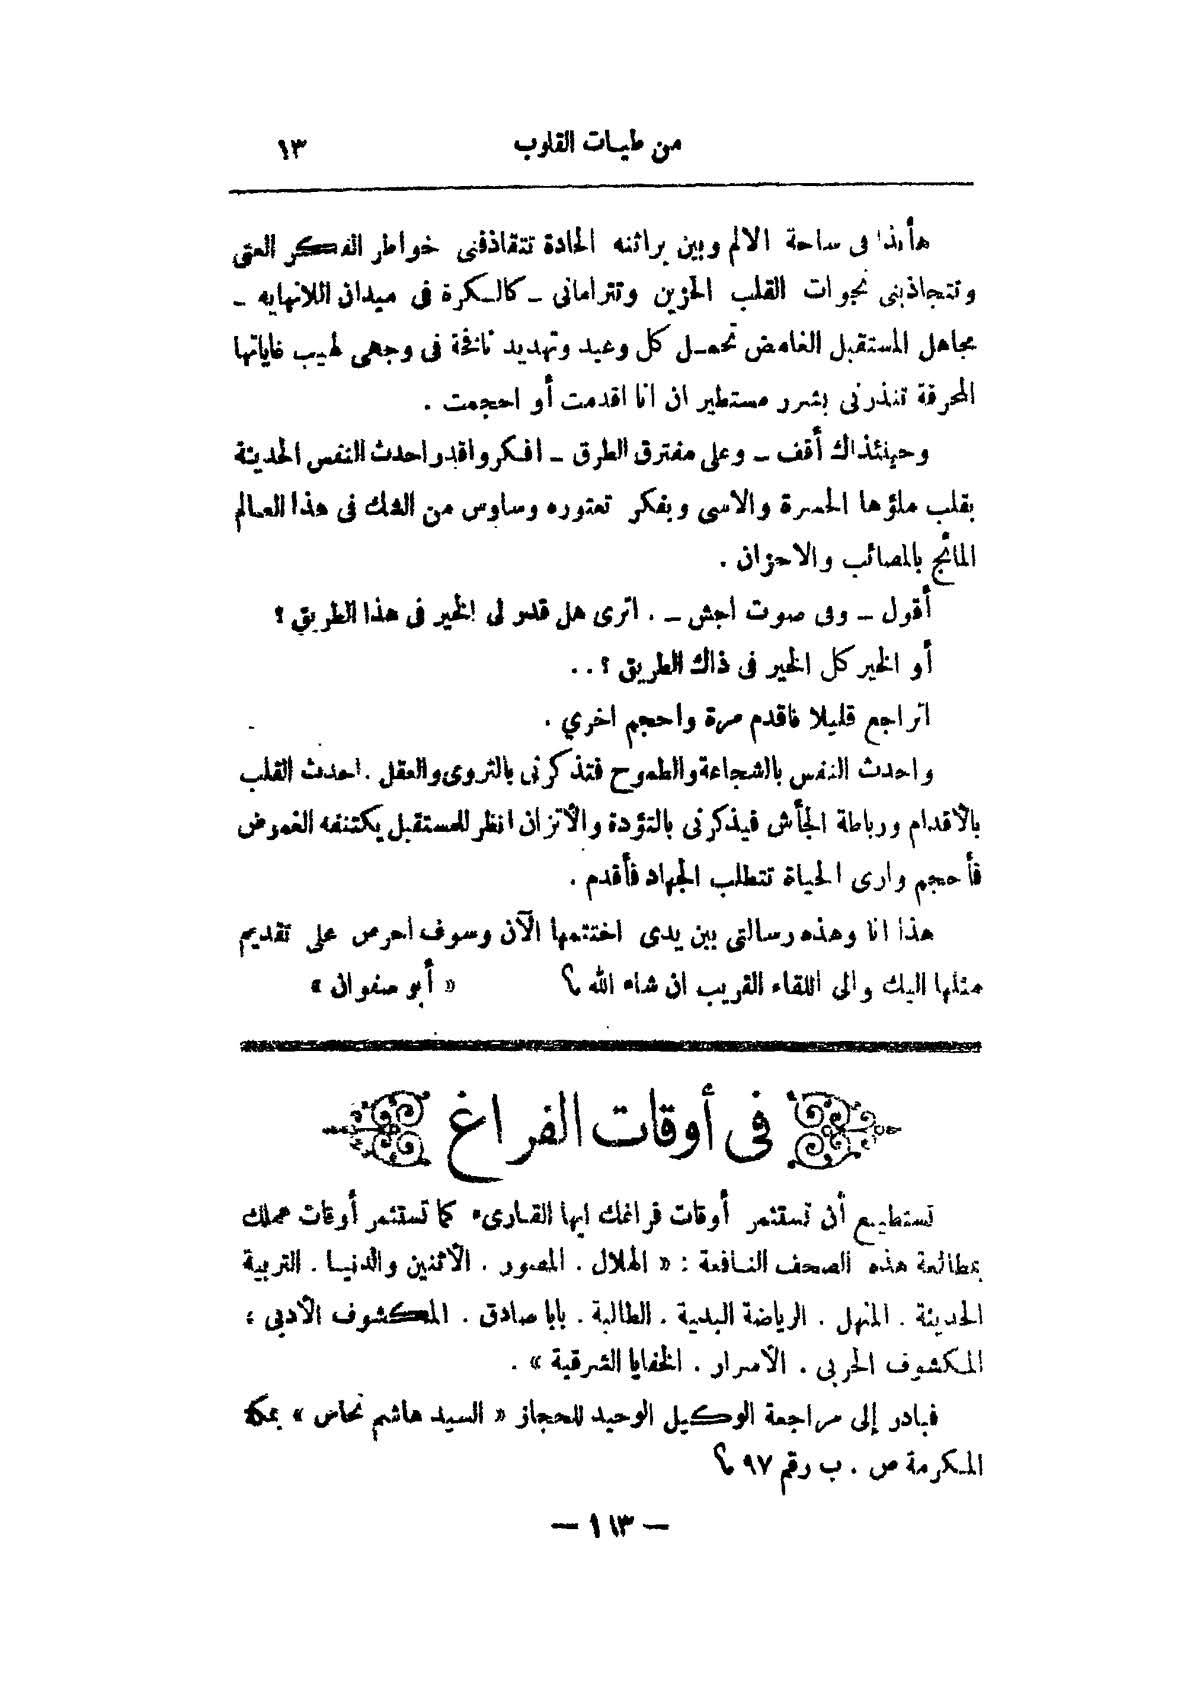 من طيات القلوب ١٣
هأنذا في ساحة الالم وبين براثنه الحادة تتقاذفني خواطر الفكر العتي
وتتجاذبني نجوات القلب الحزين وتتراماني ــ كالكرة في ميدان اللانهايه ــ
مجاهل المستقبل الغامض تحمل كل وعيد وتهديد نافخة في وجهي لهيب غاياتها
المحرقة تنذرني بشرر مستطير ان انا اقدمت أو احجمت .
وحينئذاك أقف ــ وعلى مفترق الطرق ــ افكر واقدر احدث النفس الحديثة
بقلب ملؤها الحسرة والاسى وبفكر تعتوره وساوس من الشك في هذا العالم
المائج بالمصائب والاحزان .
أقول ــ وفي صوت اجش ــ . اترى هل قدر لي الخير في هذا الطريق ؟
أو الخير كل الخير في ذاك الطريق ؟ . .
اتراجع قليلا فاقدم مرة واحجم اخري .
واحدث النفس بالشجاعة والطموح فتذكرني بالتروي والعقل . احدث القلب
بالأقدام ورباطة الجأش فيذكرني بالتؤدة والأتزان انظر للمستقبل يكتنفه الغموض
فأحجم وارى الحياة تتطلب الجهاد فأقدم .
هذا انا وهذه رسالتي بين يدي اختتمها الآن وسوف احرص على تقديم
مثلها اليك والى اللقاء القريب ان شاء الله ؟ « أبو صفوان »
في أوقات الفراغ
تستطيع أن تستثمر أوقات فراغك ايها القارىء كما تستثمر أوقات عملك
بمطالعة هذه الصحف النافعة : « الهلال . المصور . الأثنين والدنيا . التربية
الحديثة . المنهل . الرياضة البدنية . الطالبة . بابا صادق . المكشوف الأدبي ؛
المكشوف الحربي . الأسرار . الخفايا الشرقية » .
فبادر إلى مراجعة الوكيل الوحيد للحجاز « السيد هاشم نحاس » بمكة
المكرمة ص . ب رقم ٩٧ ؟
— ١١٣ —